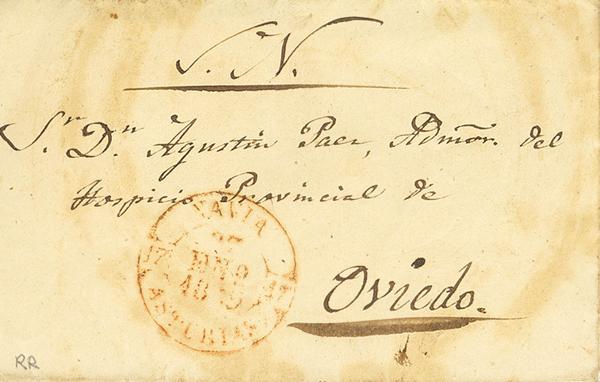 S. N.
Sr. Dn. Agustín Paez, Admor. del
Hospicio Provincial de
Oviedo.
ENO
ASTURIAS
RR